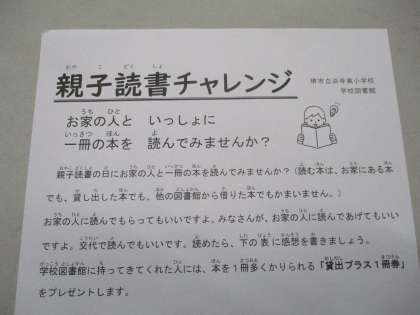 親子読書チャレンジ
堺市立浜寺東小学校
学校図書館
お家の人と いっしょに
一冊の本を 読んでみませんか？
親子読書の日にお家の人と一冊の本を読んでみませんか？（読む本は、お家にある本
でも、貸し出した本でも、他の図書館から借りた本でもかまいません。）
お家の人に読んでもらってもいいですよ。みなさんが、お家の人に読んであげてもいい
ですよ。交代で読んでもいいです。読めたら、下の表に感想を書きましょう。
学校図書館に持ってきてくれた人には、本を１冊多くかりられる「貸出プラス１冊券」
をプレゼントします。